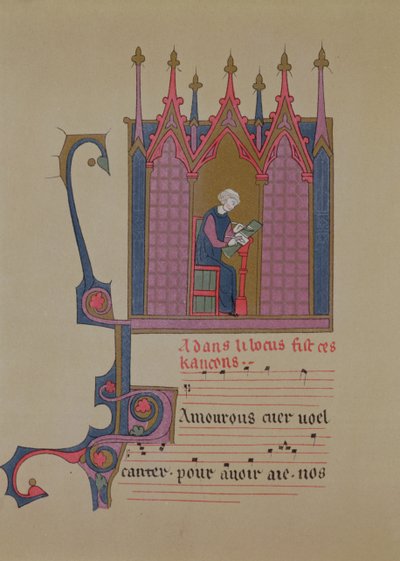 Adans li bocus fist ces
kancons--
Amourous cuer uoel
canter. pour auoir aie. nos